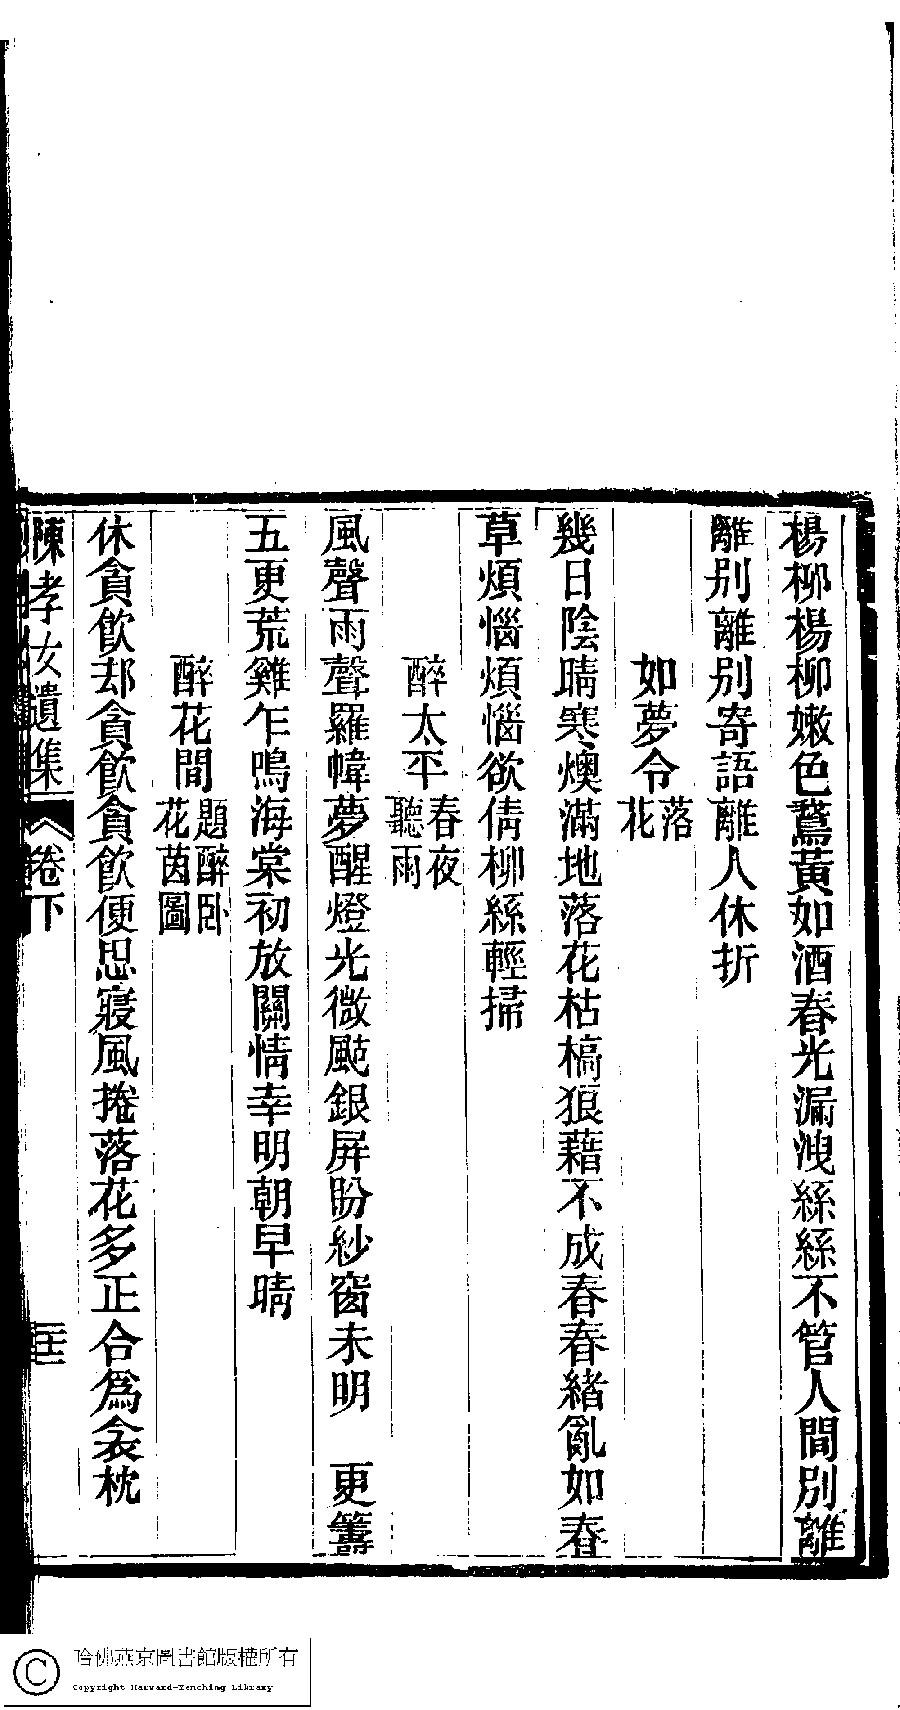 楊柳楊柳嫩色鵞黃如酒春光漏洩絲絲不管人間別離
離别離别寄語離人休折
如夢令落花
幾日陰晴寒燠滿地落花枯槁狼藉不成春春緒亂如春
草煩惱煩惱欲倩柳絲輕掃
醉太平春夜聽雨
風聲雨聲羅幃夢醒燈光微颭銀屏盼紗窗未明　更籌
五更荒雞乍鳴海棠初放關情幸明朝早晴
醉花間題醉卧花茵圖
休貪飲却貪飲貪飲便思寢風捲落花多正合爲衾枕
陳孝女遺集　卷下　二十三
哈佛燕京圖書館版權所有
Copyright Harvard-Yenching Library